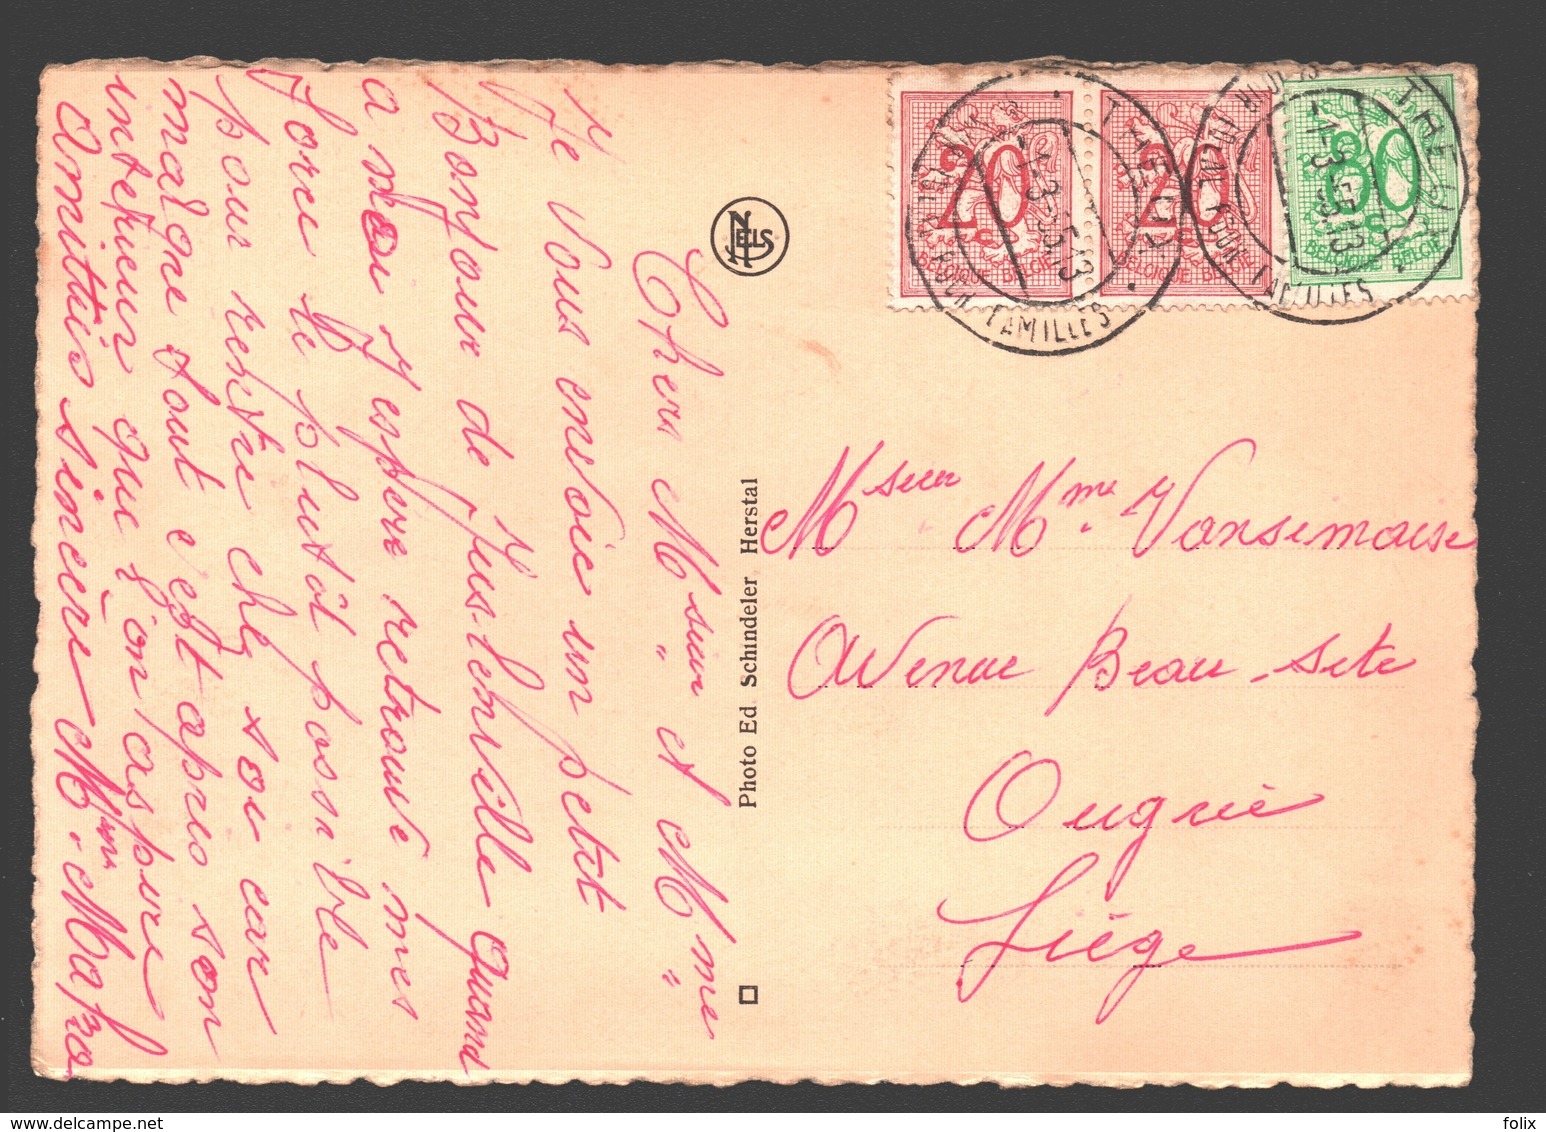 Chers Msieur et Mme
Je Vous envoie un petit
Bonjour de Juslenville quand
a moi j'espère retrouvé mes
force le plutôt possible
pour restré chez soi car
malgré tout c'est apris son
intérieur que l'on aspire
Amitiés sincèrs Mme
NELS
Photo Ed Schindeler Herstal
20 20 80
BELGIQUE BELGIE BELGIQUE BELGIE BELGIQUE BELGIE
THEUX
-1-3-55.13
FAMILLES
THEUX
-1-3-55.13
FAMILLES
Msieur Mme Vansimaese
Avenue Beau-site
Ougrée
Liége
folix
delcampe.net